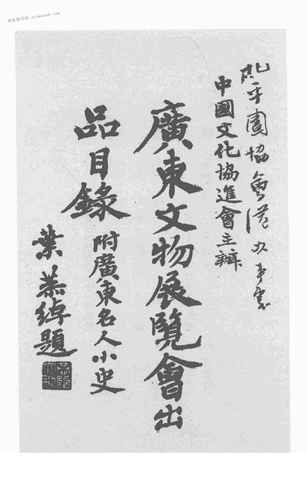 北平圖協會港办事
中國文化協進會主辦
廣東文物展覽會出
品目錄 附廣東名人小史
葉恭綽題